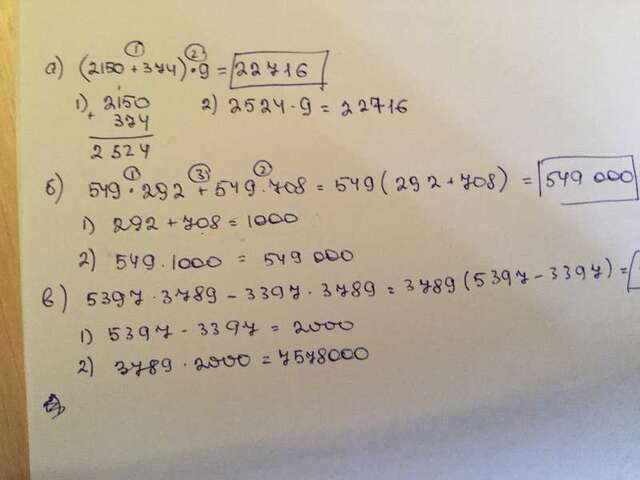 а) (2150 + 374) · 9 = 22716
1) + 2150 2) 2524 · 9 = 22716
374
2524
б) 549 · 292 + 549 · 708 = 549 (292 + 708) = 549 000
1) 292 + 708 = 1000
2) 549 · 1000 = 549 000
в) 5397 · 3789 - 3397 · 3789 = 3789 (5397 - 3397) =
1) 5397 - 3397 = 2000
2) 3789 · 2000 = 7578000